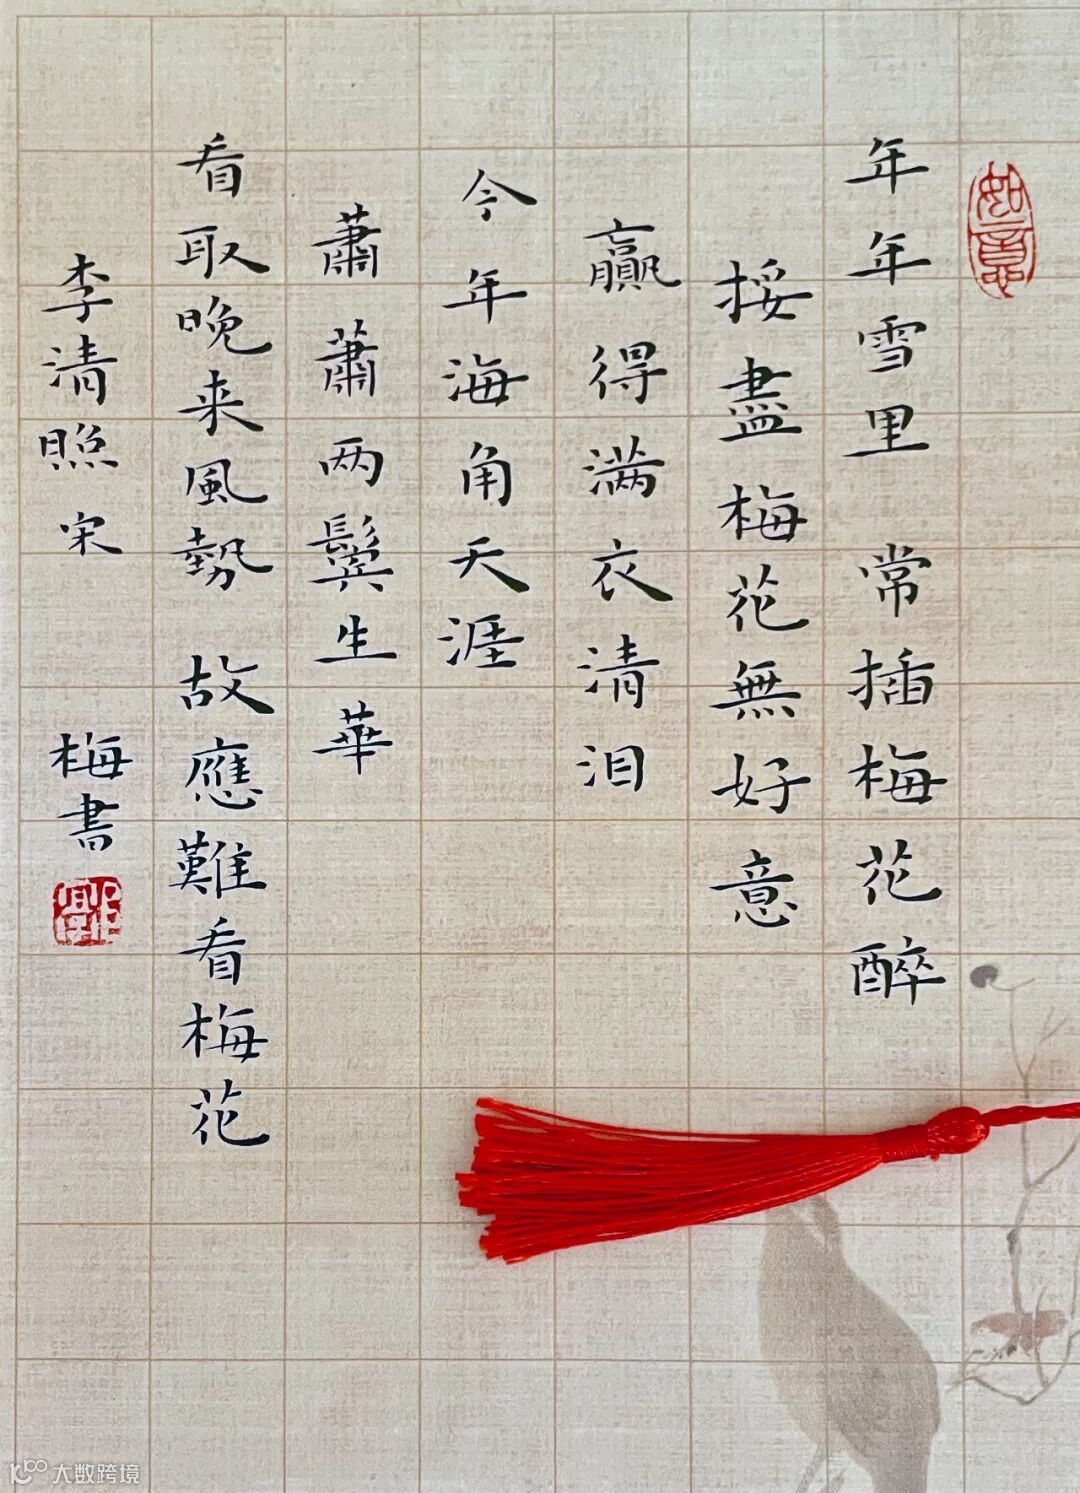 如意
年年雪里 常插梅花醉
挼盡梅花無好意
贏得满衣清泪
今年海角天涯
蕭蕭两鬓生華
看取晚来風勢 故應難看梅花
李清照 宋 梅書
大数跨境